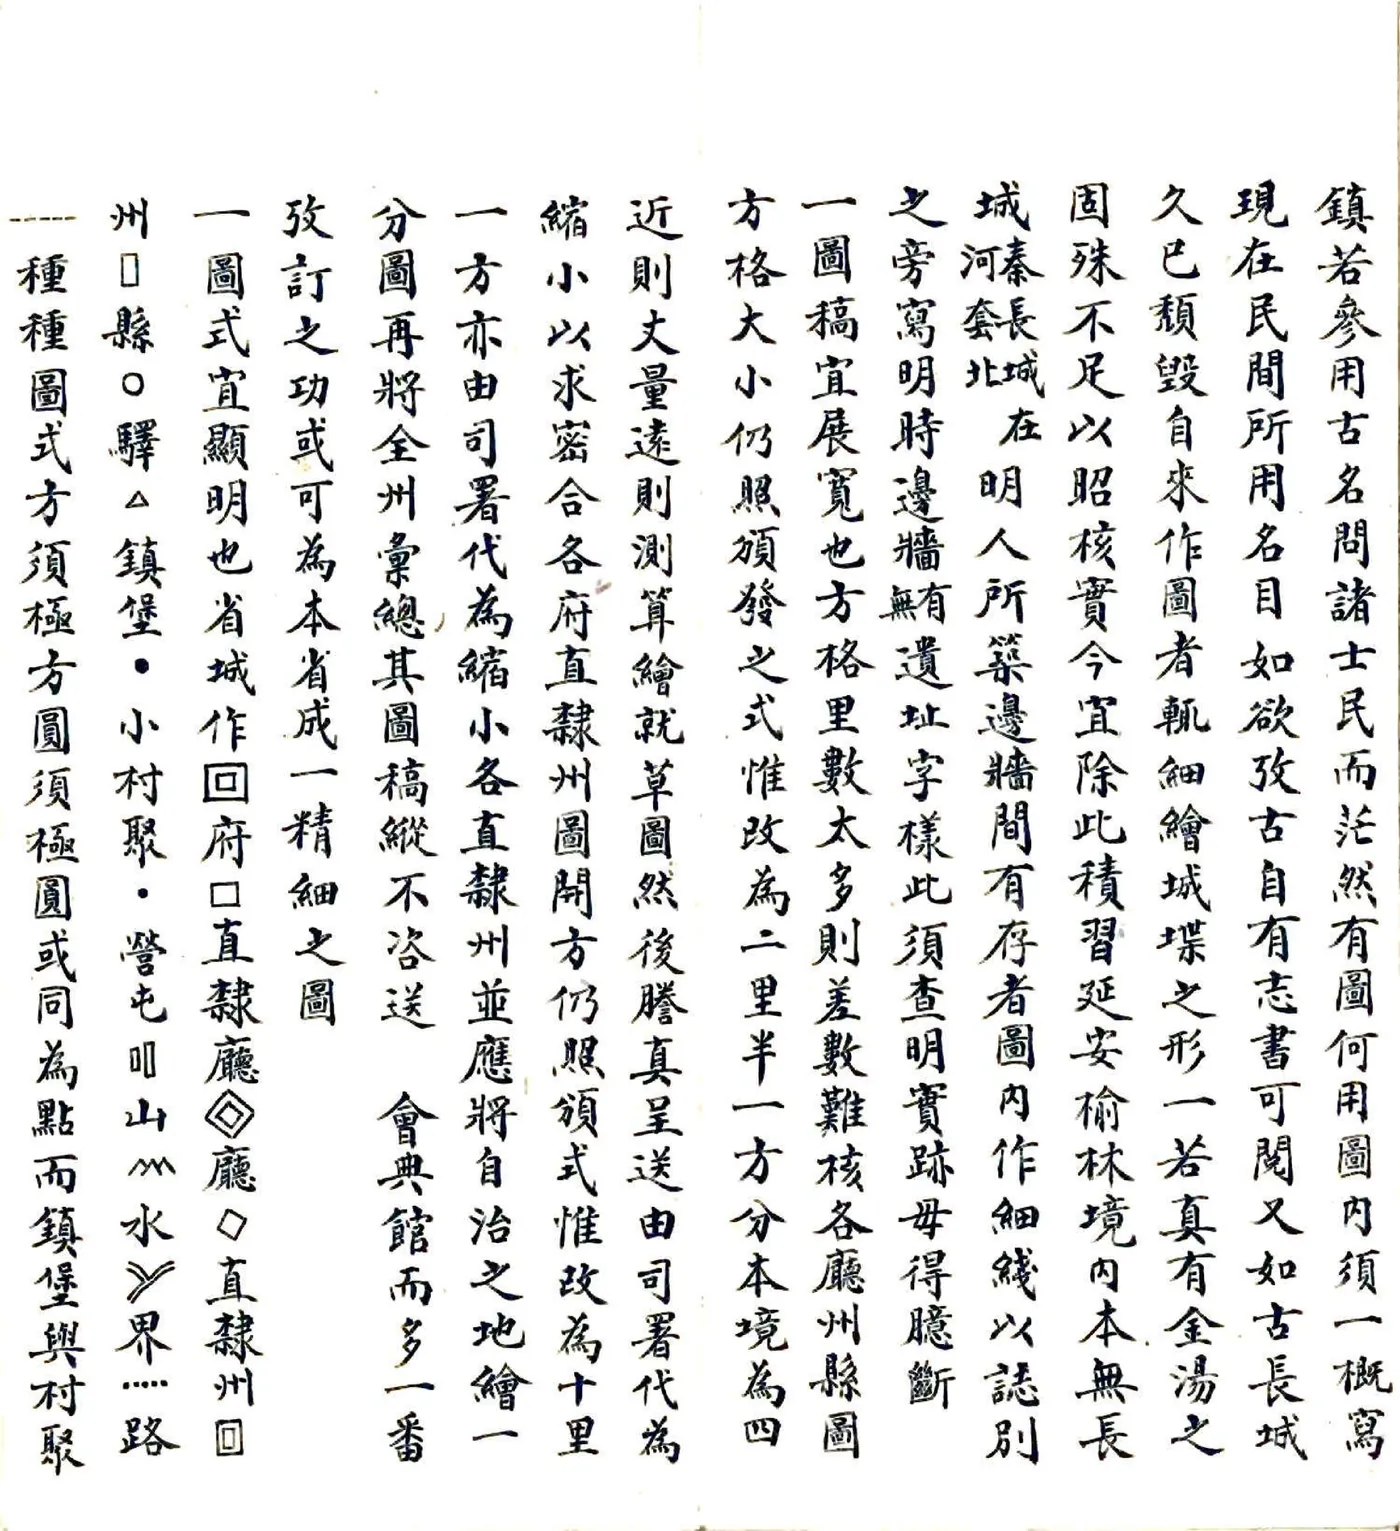 鎮若參用古名問諸士民而茫然有圖何用圖內須一概寫
現在民間所用名目如欲攷古自有志書可閱又如古長城
久已頹毀自來作圖者輒細繪城堞之形一若真有金湯之
固殊不足以昭核實今宜除此積習延安榆林境內本無長
城秦長城在河套北明人所築邊牆間有存者圖內作細綫以誌別
之旁寫明時邊牆有無遺址字樣此須查明實跡毋得臆斷
一圖稿宜展寬也方格里數太多則差數難核各廳州縣圖
方格大小仍照頒發之式惟改為二里半一方分本境為四
近則丈量遠則測算繪就草圖然後謄真呈送由司署代為
縮小以求密合各府直隸州圖開方仍照頒式惟改為十里
一方亦由司署代為縮小各直隸州並應將自治之地繪一
分圖再將全州彙總其圖稿縱不咨送 會典館而多一番
攷訂之功或可為本省成一精細之圖
一圖式宜顯明也省城作回府□直隸廳◈廳◇直隸州回
州▯縣○驛△鎮堡●小村聚•營屯叩山水界⋯⋯路
------種種圖式方須極方圓須極圓或同為點而鎮堡與村聚